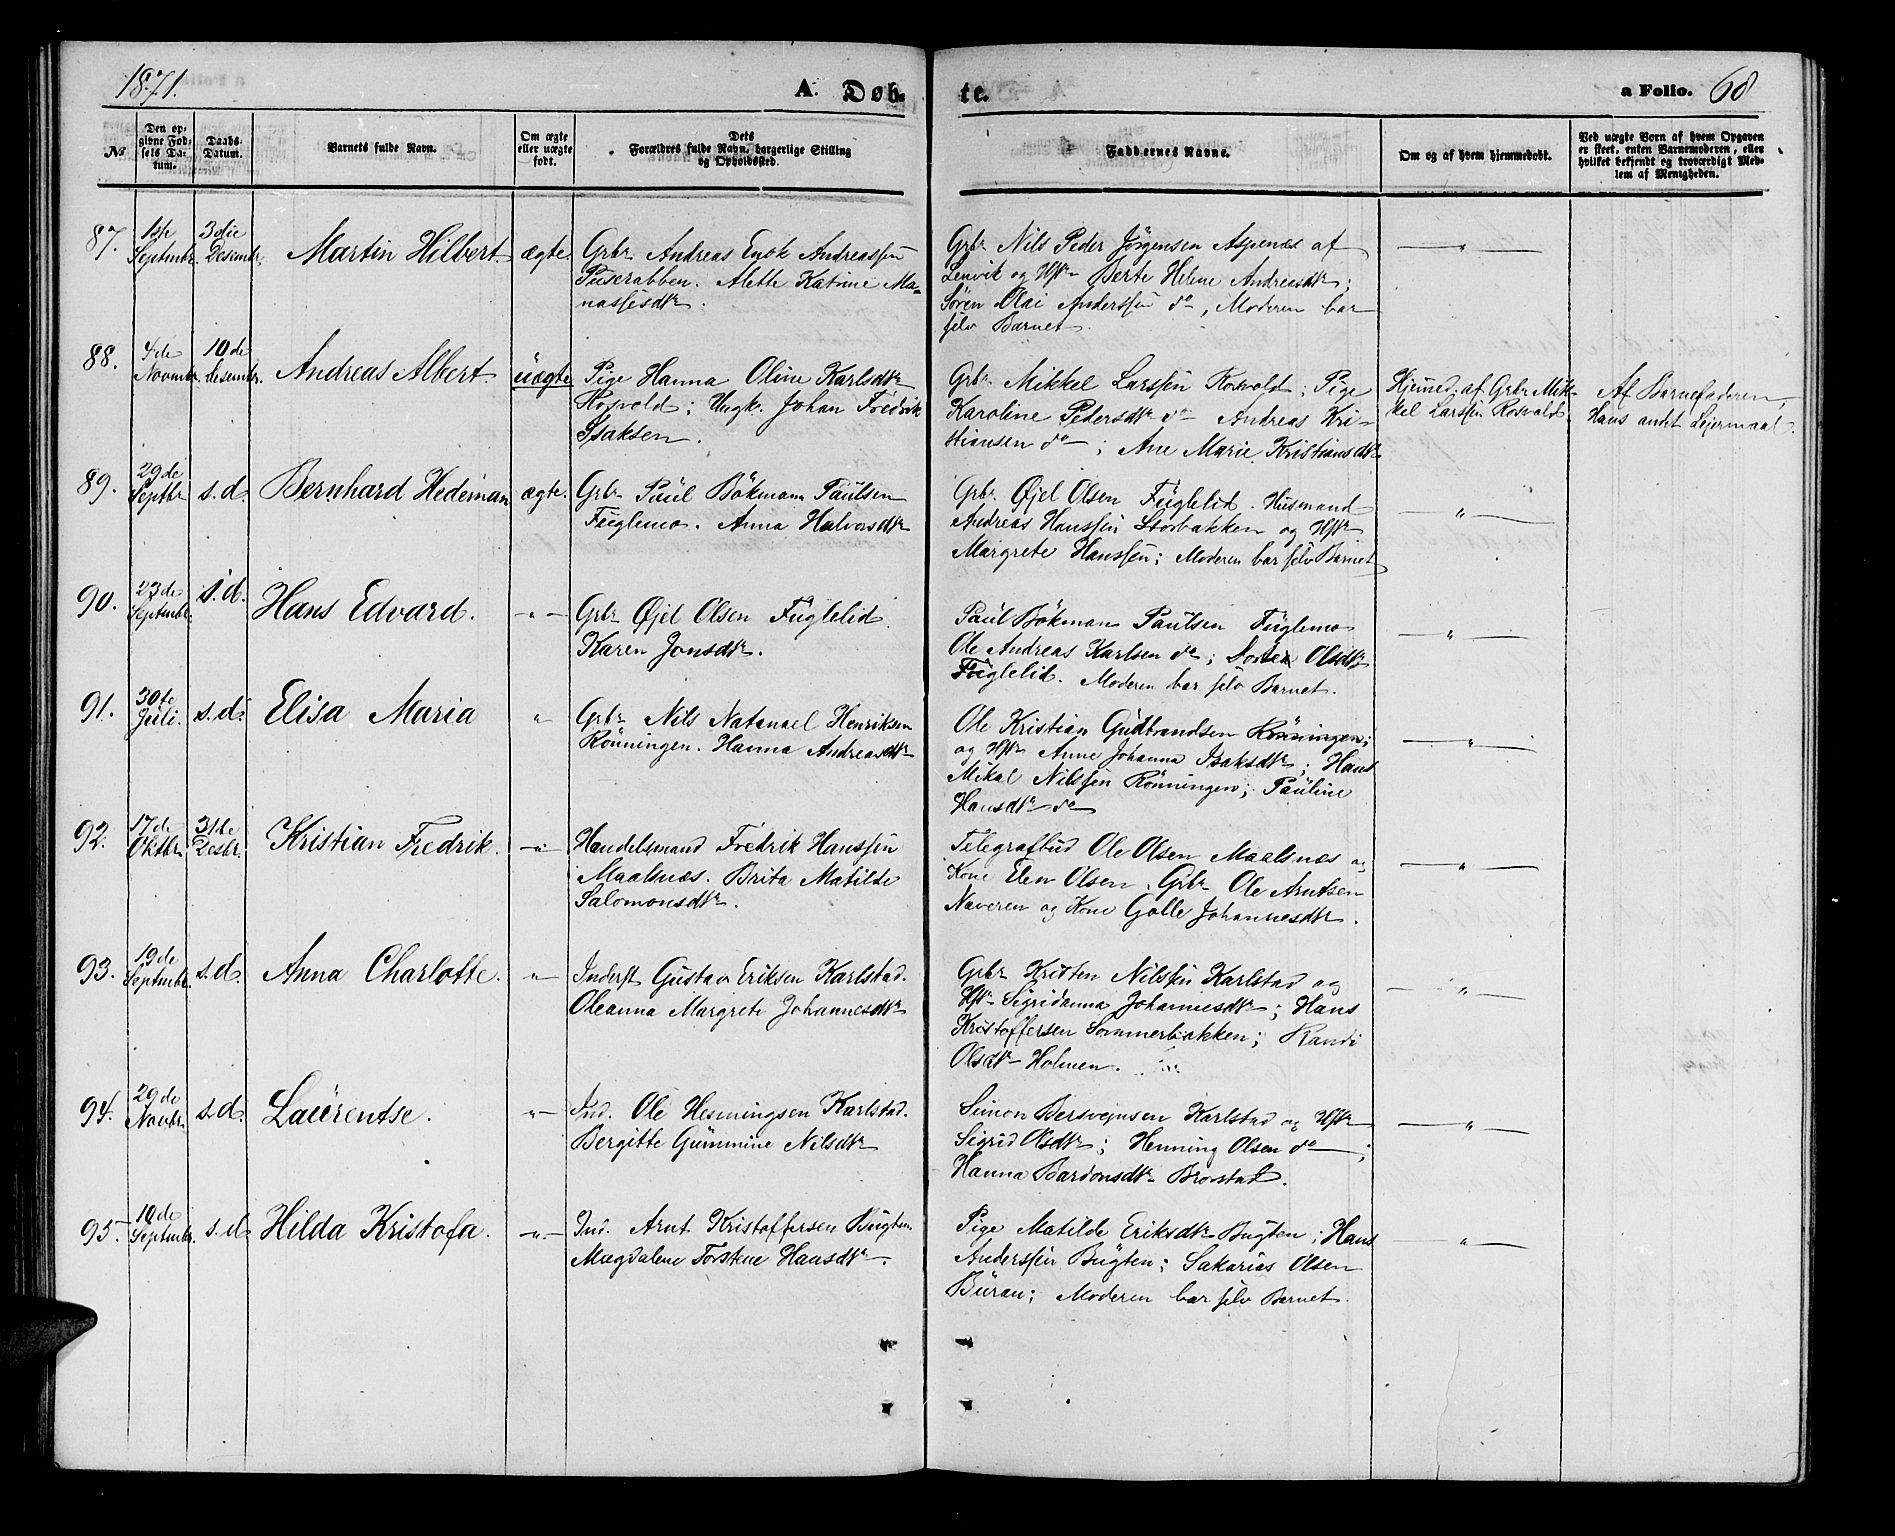 1871.
A. Døb-
te.
a Folio. 68
№
Den op-
givne Fød-
sels Da-
tum.
Daabs-
Datum.
Barnets fulde Navn.
Om ægte
eller uægte
født.
Dets
Forældres fulde Navn, borgerlige Stilling
og Opholdssted.
Faddernes Navne.
Om og af hvem hjemmedøbt.
Ved uægte Børn af hvem Opgaven
er skeet, enten Barnemoderen, eller
hvilket bekjendt og troværdigt Med-
lem af Menigheden.
87.
1ste
Septmbr.
3die
Desembr.
Martin Hilbert
ægte.
Grbr Andreas Enok Andreassen
Tuserabben. Alette Katrine Ma-
nassesdtr.
Grbr Nils Peder Jørgensen Aspenæs af
Lenvik og Hstr Berte Helene Andreasdtr;
Søren Olai Anderssen do, Moderen bar
selv Barnet
— " —
88.
4de
Novmbr.
10de
Desembr.
Andreas Albert.
uægte
Pige Hanna Oline Karlsdtr
Rosvold; Ungk. Johan Fredrik
Isaksen.
Grbr Mikkel Larssen Rosvold; Pige
Karoline Pedersdtr do Andreas Kri-
stiansen do; Ane Marie Kristiansdtr
Hjemmed. af Grbr Mik-
kel Larssen Rosvold
Af Barnefaderen,
Hans andet Lejermaal.
89.
29de
Septbr
s.d.
Bernhard Hedeman
ægte.
Grbr Paul Bökman Paulsen
Fuglemo. Anna Halvorsdtr
Grbr Øjel Olsen Fuglelid. Husmand
Andreas Hanssen Storbakken og Hstr
Margrete Hanssen; Moderen bar selv Barnet
— " —
90.
23de
Septmbr.
s.d.
Hans Edvard.
— " —
Grbr Øjel Olsen Fuglelid.
Karen Jonsdtr.
Paul Bökman Paulsen Fuglemo
Ole Andreas Karlsen do; Olsdtr
Fuglelid. Moderen bar selv Barnet.
— " —
91.
30te
Juli.
s.d.
Elisa Maria
"
Grbr Nils Natanael Henriksen
Rönningen. Hanna Andreasdtr
Ole Kristian Gudbrandsen Rönningen;
og Hstr Anne Johanna Isaksdtr; Hans
Mikal Nilssen Rönningen; Pauline
Hansdtr do
— " —
92.
17de
Oktbr
31te
Desbr.
Kristian Fredrik.
— " —
Handelsmand Fredrik Hanssen
Maalsnæs. Brita Matilde
Salomonsdtr.
Telegrafbud Ole Olsen Maalsnæs og
Kone Elen Olsen. Grbr Ole Arntsen
Naveren og Kone Golle Johannesdtr.
— " —
93.
19de
Septmbr.
s.d.
Anna Charlotte.
"
Inderst Gustav Eriksen Karlstad.
Oleanna Margrete Johannesdtr
Grbr Kristen Nilssen Karlstad og
Hstr Sigridanna Johannesdtr; Hans
Kristoffersen Sommerbakken; Randi
Olsdtr Holmen.
— " —
94.
29de
Novbr.
s.d.
Laurentse.
"
Ind. Ole Henningsen Karlstad.
Bergitte Gummine Nilsdtr
Simon Bersvejnsen Karlstad og Hstr
Sigrid Olsdtr; Henning Olsen do;
Hanna Bardonsdtr Brostad.
— " —
95
10de
Septmbr.
s.d.
Hilda Kristofa.
— " —
Ind. Arnt Kristoffersen Bugten
Magdalene Torstine Hansdtr.
Pige Matilde Eriksdtr Bugten; Hans
Anderssen Bugten; Sakarias Olsen
Buran; Moderen bar selv Barnet.
— " —